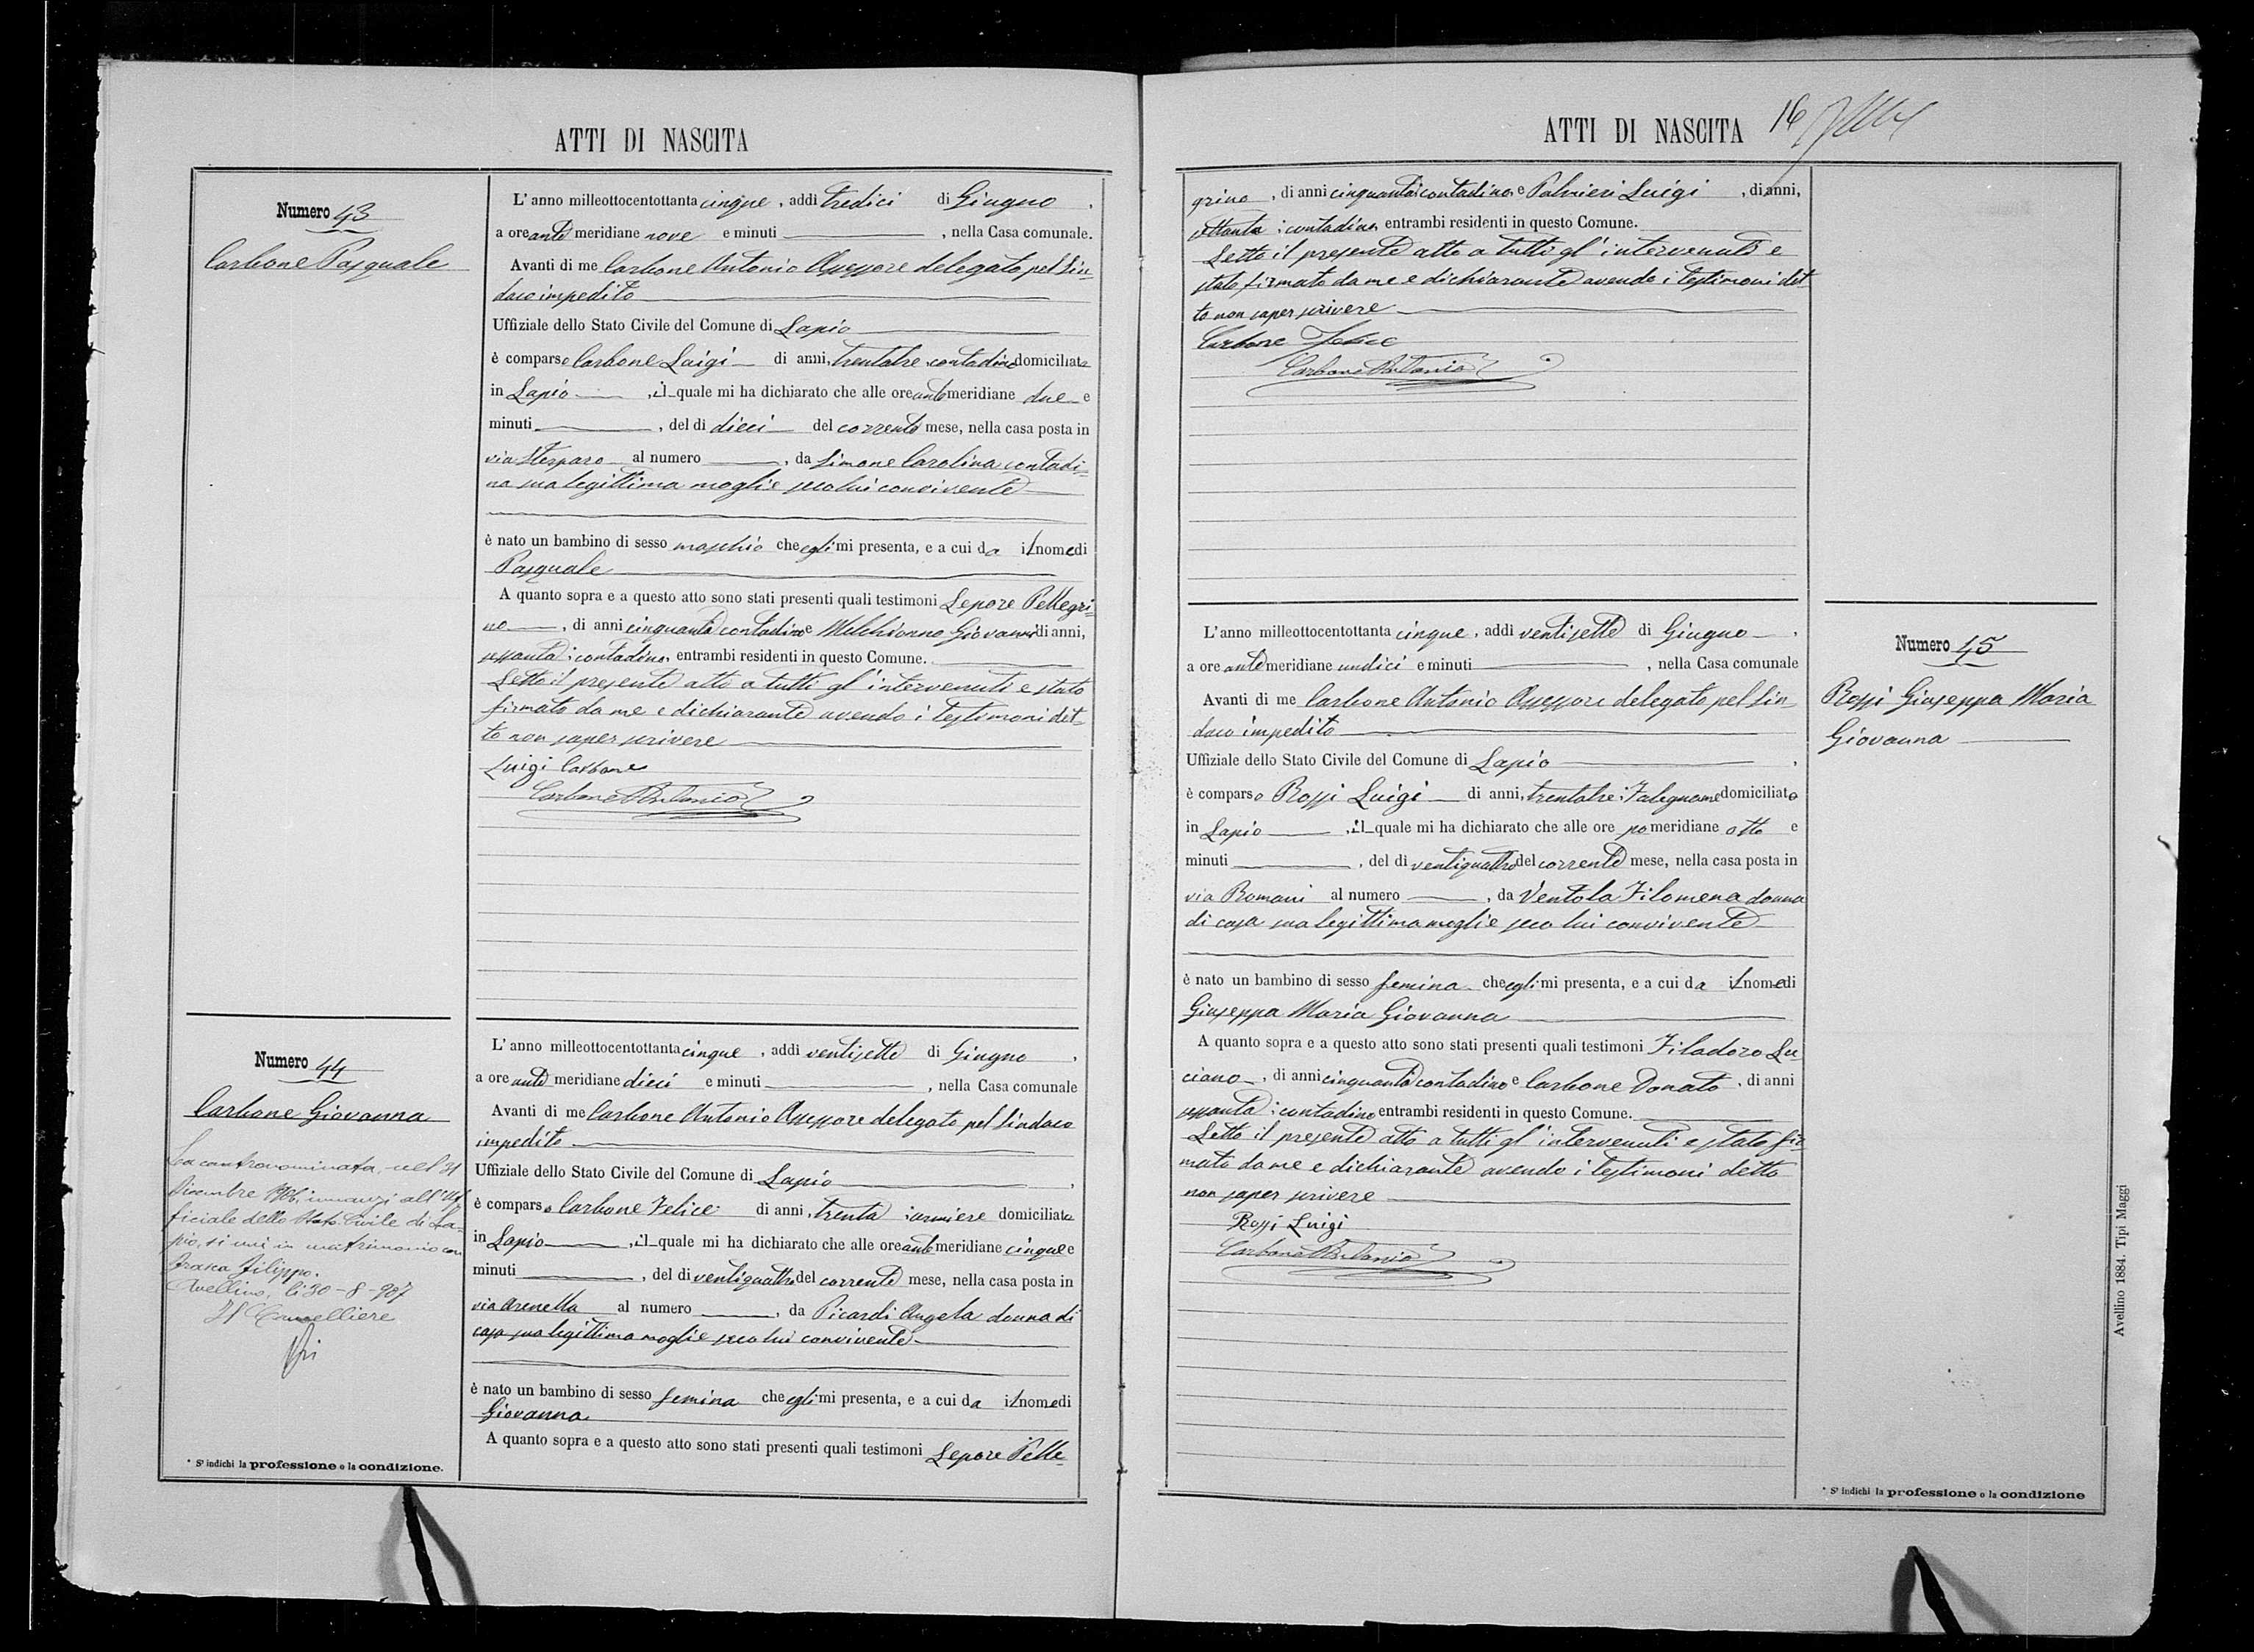 ATTI DI NASCITA
Numero 43
Carbone Pasquale
L'anno milleottocentottanta cinque, addì tredici di Giugno,
a ore ante meridiane nove e minuti, nella Casa comunale.
Avanti di me Carbone Antonio Assessore delegato pel Sin-
daco impedito
Uffiziale dello Stato Civile del Comune di Lapio
è comparso Carbone Luigi di anni, trentatre contadino domiciliato
in Lapio, il quale mi ha dichiarato che alle ore ante meridiane due e
minuti, del dì dieci del corrente mese, nella casa posta in
via Sterparo al numero, da Simone Carolina contadi-
na sua legittima moglie seco lui convivente
è nato un bambino di sesso maschio che egli mi presenta, e a cui da il nome di
Pasquale
A quanto sopra e a questo atto sono stati presenti quali testimoni Lepore Pellegri-
no, di anni cinquanta contadino e Melchionno Giovanni di anni,
sessanta: contadino, entrambi residenti in questo Comune.
Letto il presente atto a tutti gl'intervenuti e stato
firmato da me e dichiarante avendo i testimoni det-
to non saper scrivere
Luigi Carbone
Carbone Antonio
Numero 44
Carbone Giovanna
La contronominata, nel 31
Dicembre 1906, innanzi all'Uf
ficiale dello Stato Civile di La-
pio, si unì in matrimonio con
Filippo.
Avellino, li 30-8-907
Il Cancelliere
L'anno milleottocentottanta cinque, addì ventisette di Giugno,
a ore ante meridiane dieci e minuti, nella Casa comunale
Avanti di me Carbone Antonio Assessore delegato pel Sindaco
impedito
Uffiziale dello Stato Civile del Comune di Lapio,
è comparso Carbone Felice di anni, trenta domiciliato
in Lapio, il quale mi ha dichiarato che alle ore ante meridiane cinque e
minuti, del dì ventiquattro del corrente mese, nella casa posta in
via Arenella al numero, da Picardi Angela donna di
casa sua legittima moglie seco lui convivente
è nato un bambino di sesso femina che egli mi presenta, e a cui da il nome di
Giovanna
A quanto sopra e a questo atto sono stati presenti quali testimoni Lepore Pelle-
* Si indichi la professione o la condizione.
ATTI DI NASCITA 16
grino, di anni cinquanta: contadino, e Palmieri Luigi, di anni,
settanta: contadino, entrambi residenti in questo Comune.
Letto il presente atto a tutti gl'intervenuti e
stato firmato da me e dichiarante avendo i testimoni det-
to non saper scrivere
Carbone Felice
Carbone Antonio
Numero 45
Rossi Giuseppa Maria
Giovanna
L'anno milleottocentottanta cinque, addì ventisette di Giugno,
a ore ante meridiane undici e minuti, nella Casa comunale
Avanti di me Carbone Antonio Assessore delegato pel Sin-
daco impedito
Uffiziale dello Stato Civile del Comune di Lapio.
è comparso Rossi Luigi di anni, trentatre: Falegname domiciliato
in Lapio, il quale mi ha dichiarato che alle ore pomeridiane otto e
minuti, del dì ventiquattro del corrente mese, nella casa posta in
via Romani al numero, da Ventola Filomena donna
di casa sua legittima moglie seco lui convivente
è nato un bambino di sesso femina che egli mi presenta, e a cui da il nome di
Giuseppa Maria Giovanna
A quanto sopra e a questo atto sono stati presenti quali testimoni Filadoro Lu
ciano, di anni cinquanta contadino e Carbone Donato, di anni
sessanta: contadino entrambi residenti in questo Comune.
Letto il presente atto a tutti gl'intervenuti e stato fir
mato da me e dichiarante avendo i testimoni detto
non saper scrivere
Rossi Luigi
Carbone Antonio
* Si indichi la professione o la condizione
Avellino 1884. Tipi Maggi